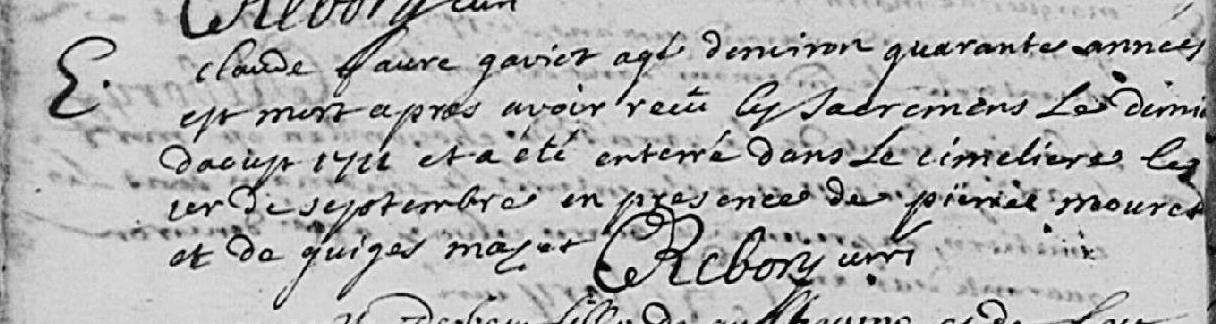 Rebory curé
E.
claude faure gaviot agé denviron quarante années
est mort apres avoir recu les sacremens Le dernie
daoust 1711 et a été enterré dans Le cimetiere le
ier de septembre en presence de pierre mouret
et de guiges mazet Rebory curé